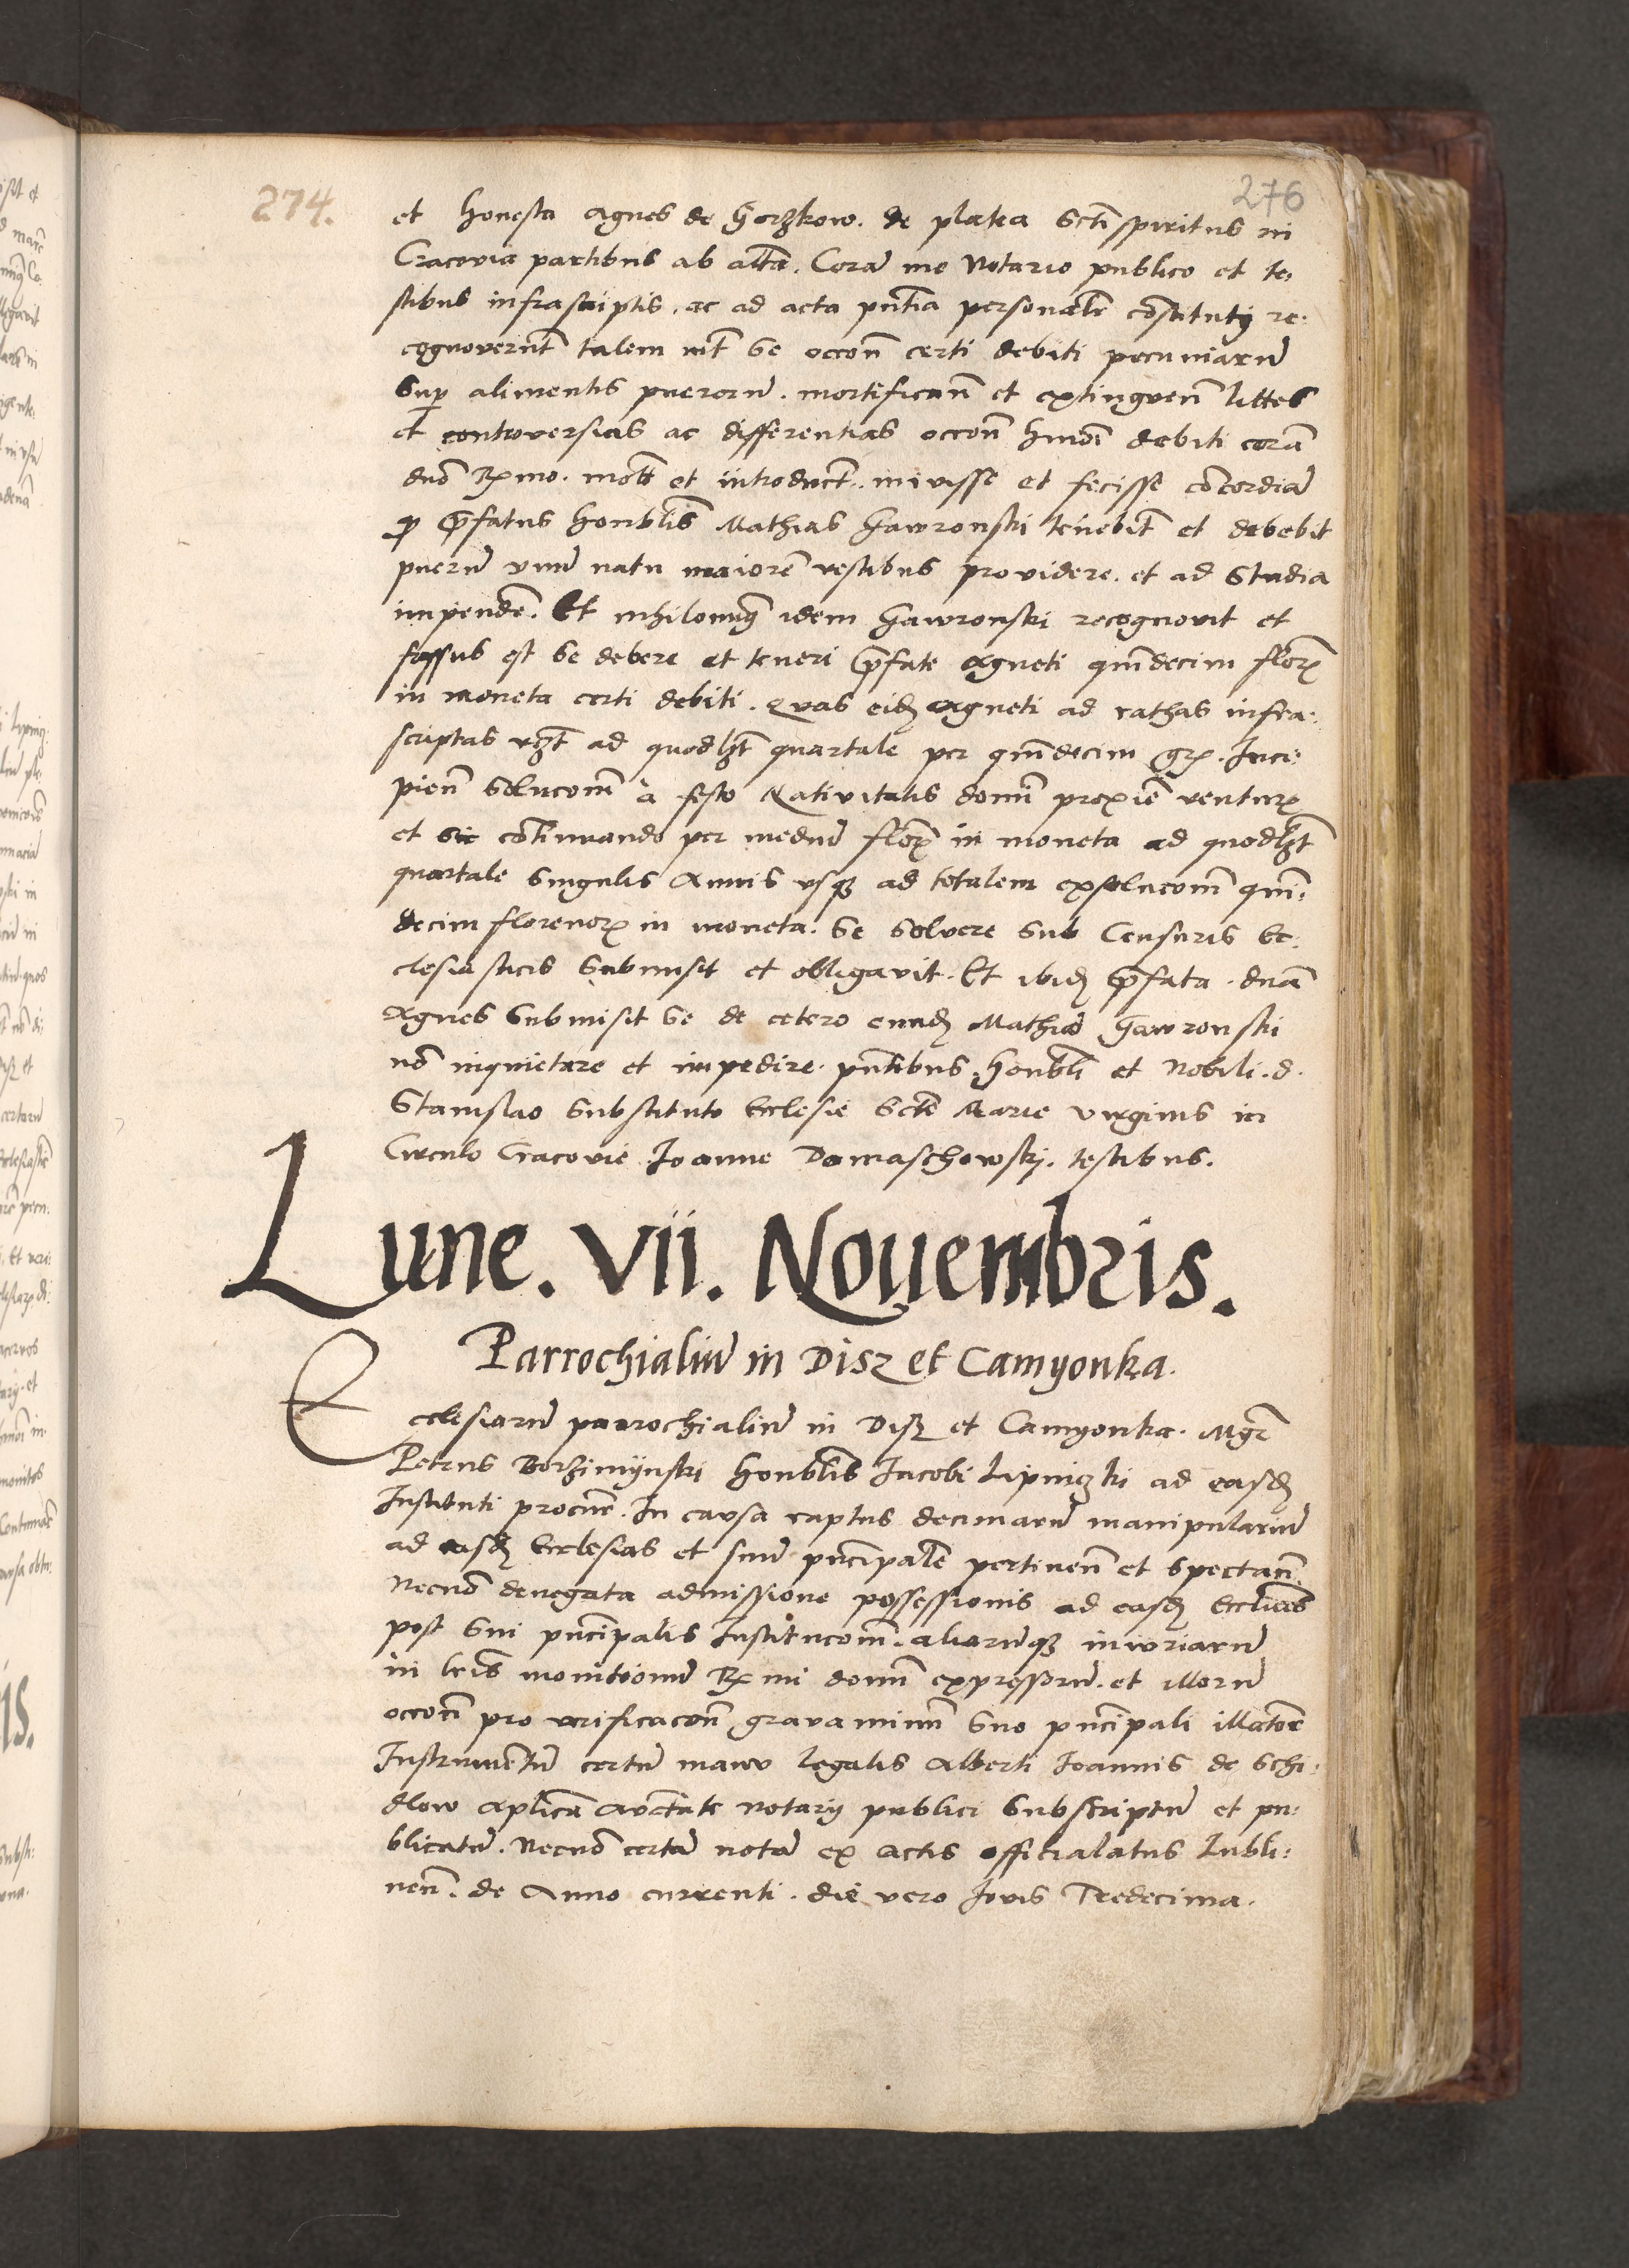 274.
276
et honesta Agnes de Gorzkow. de platea Scti spiritus in
Cracovia partibus ab altã. Corã me Notario publico et te:
stibus infrascriptis. ac ad acta pñtia personalr̃ cõstituti re:
cognoverũt talem iñt se occoñ certi debiti pecuniarũ
Sup alimentis puerorũ. mortificañ et extinguen̄ littes
et controversias ac differentias occoñ hmõi debiti corã
dño Rx̃mo. mot̃ et introduct̃. inivisse et fecisse cõcordiã
ꝙ p̃fatus honblĩs Mathias Gawronski tenebit̃ et debebit
puerũ unũ natu maiorẽ vestibus providere. et ad studia
impendẽ. Et nihilomĩꝰ idem Gawronski recognovit et
fassus est se debere et teneri p̃fate Agneti quĩdecim florꝭ
in moneta certi debiti. Quas eidẽ Agneti ad rathas infra:
scriptas vzt̃ ad quodlzt̃ quartale per quĩdecim grꝭ. Inci:
pieñ solucoñ à festo Nativitatis domĩ proxiẽ venturꝭ
et sic cõtinuando per mediũ florꝭ in moneta ad quodlzt̃
quartale singulis Annis usqꝫ ad totalem exsolucoñ quĩ:
decim florenorꝭ in moneta. Se solvere sub Censuris Ec:
clesiasticis submisit et obligavit. Et ibidẽ p̃fata. dña
Agnes submisit se de cetero eundẽ Mathiã Gawronski
nõ inquietare et impedire. pñtibus. honblĩ et Nobili. d.
Stanislao substituto Ecclesie Sctẽ Marie virginis in
Circulo Cracovie Joanne Domaschowskj. testibus.
Lune. vii. Nouembris.
Parrochialiũ in Disz et Camyonka.
Ecclesiarũ parrochialiũ in Disz et Camyonka. Mgr̃
Petrus Borzimijnski honblĩs Jacobi Lipniczki ad easdẽ
Instituti procur̃. In causa raptus decimarũ manipulariũ
ad easdẽ Ecclesias et suũ pñcipalẽ pertineñ et spectañ.
Necnõ denegata admissione possessionis ad easdẽ Ecclĩas
post sui pñcipalis Institucoñ. aliarũqꝫ iniuriarũ
in lrĩs monitoriũ Rx̃mi domĩ expressarũ. et illorũ
occoñ pro verificacoñ gravaminũ suo pñcipali illatorꝭ
Instrumentũ certũ manu legalis Alberti Joannis de Schi:
dlow Aplica Auctẽ notarij publici subscriptũ et pu:
blicatũ. Necnõ certã notã ex actis officialatus Lubli:
neñ. de Anno currenti. die vero Jovis Tredecima.